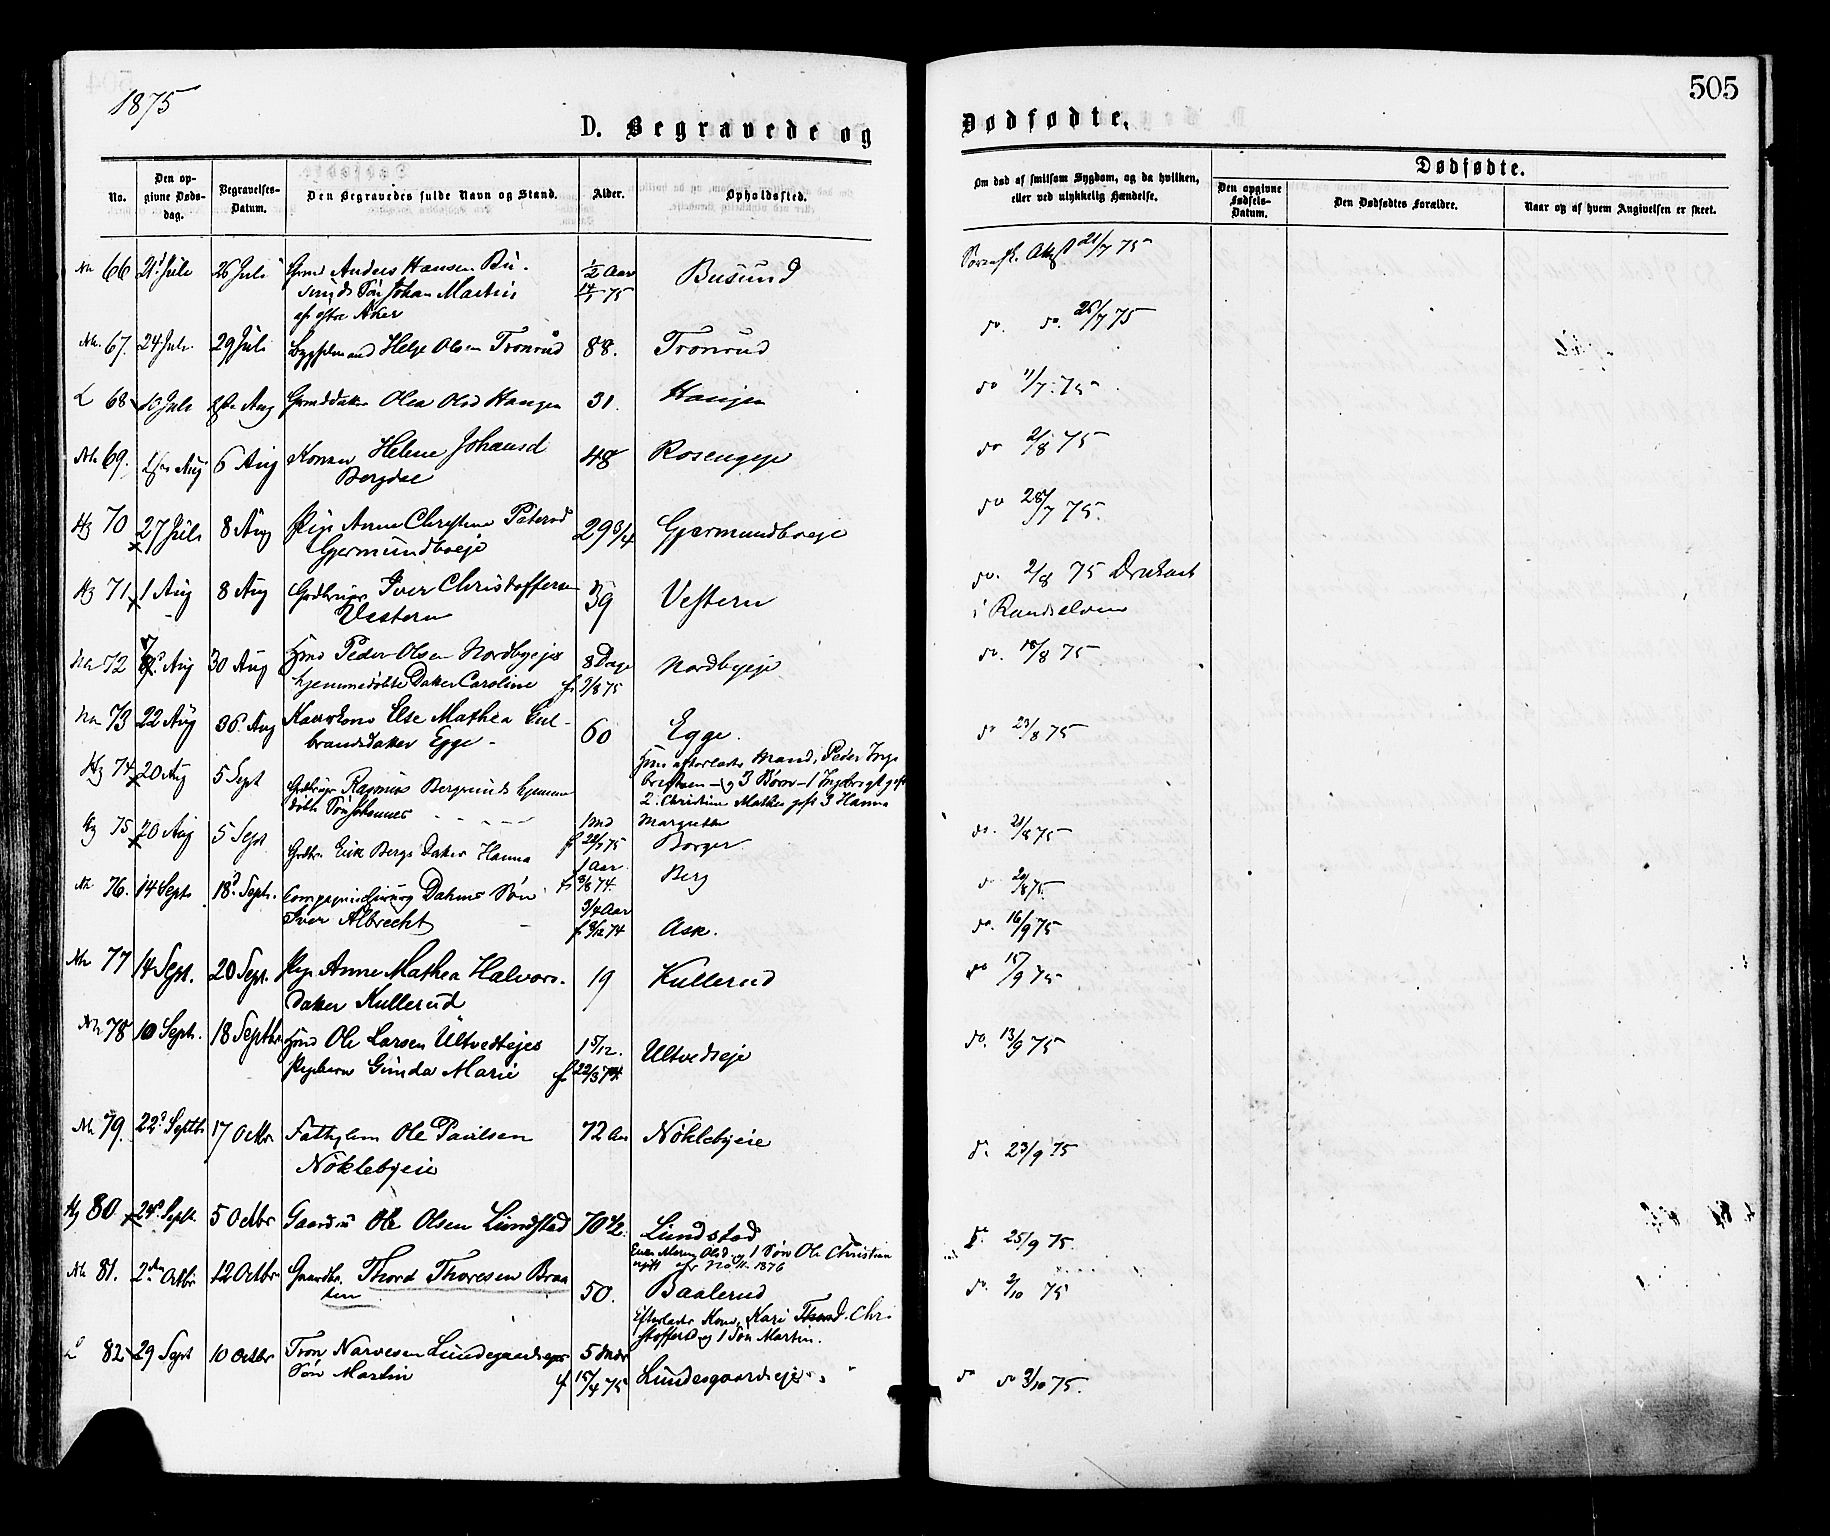 1875
505
D. Begravede og Dødfødte.
No.
Den op-
givne Døds-
dag.
Begravelses-
Datum.
Den Begravedes fulde Navn og Stand.
Alder.
Opholdssted.
Om død af smitsom Sygdom, og da hvilken,
eller ved ulykkelig Hændelse.
Dødfødte.
Den opgivne
Fødsels-
Datum.
Den Dødfødtes Forældre.
Naar og af hvem Angivelsen er skeet.
66 21 Juli 26 Juli Anders Hansen Bu- ½ Aar Busund 21/7 75
Søn Johan Martin 14/1 75
Aker
67. 24 Juli 29 Juli Helge Olsen Tronrud 88. Tronrud do. do. 26/7 75
L 68 Juli Aug Olea Olsd Haugen 31. Haugen do 11/7 75
69. Aug 6 Aug Konen Helene Johansd 48 Rosengeje do 2/8 75
Bergdal
Hg 70 27 Juli 8 Aug Pige Anne Christine Petersd 29 3/4 Gjermundboeje do 28/7 75.
Gjermundboeje
Hg 71 1 Aug 8 Aug Iver Christoffersen 39 Vestern do. 2/8 75 Druknet
Vestern i Randselven
72 Aug 30 Aug Hmd Peder Olsen Nordbyejes 8 Dage Nordbyeje do. 18/8 75
hjemmedøbte Datter Caroline f. 9/8 75
73 22 Aug 30. Aug Else Mathea Gul- 60 Egge. do 23/8 75
brandsdatter Egge
Hg 74 20 Aug 5 Sept Rasmus Bergsunds hjemme
døbte Søn Johannes 1 Md
efterlader Mand, Peder Inge
brigtsen - og 3 Børn - 1 Ingebregt gift
2. Christine Mathea gift 3 Hanna
Margrethe
f 22/7 75 Borger do. 21/8 75
Hg 75 20 Aug 5 Sept Erik Bergs Datter Hanna 1 Aar Berg do 20/8 75.
f. 8/8 74.
76. 14 Sept 18 Sept. Compagnichirurg Dahms Søn 3/4 Aar Ask. do. 16/9 75
Iver Albrecht f 8/12 74
77 14 Sept. 20 Sept. Pige Anne Mathea Halvors- 19 Kullerud do 15/9 75
datter Kullerud
78 10 Sept. 18 Septbr Hmd Ole Larsen Ultvedtejes 1 5/12. Ultvedteje do. 13/9 75
Pigebarn Gunda Marie f. 22/3 74
79. 22 Septbr 17 Octbr Fattiglem Ole Paulsen 72 Aar Nöklebyeie do. 23/9 75
Nöklebyeie
Hg 80. 24 Septbr. 5 Octbr Ole Olsen Lundstad 70 ½ Lundstad do. 25/9 75.
Enke Maren Olsd. og 1 Søn Ole Christian
ugift No 11. 1876
81. 2den Octbr 12 Octbr Gaardbr. Thord Thoresen Braa 50. Baalerud do. 2/10 75
ten
Efterlader Kone, Kari Thord. Chri
stoffersd og 1 Søn Martin.
L 82 29 Sept 10 Octbr Tron Narvesen Lundegaardsejes 5 Mdr Lundesgaardseje do do 9/10 75.
Søn Martin f 15/4 75